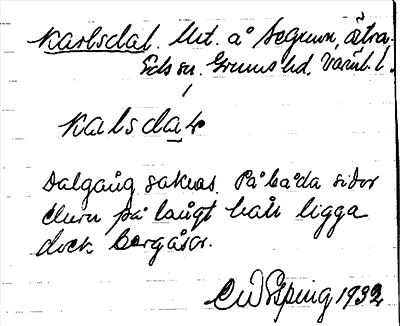 Karlsdal. Ut. å Segrum,
Eds sn. Grums hd. Värml. l.
Kalsdar
Dalgång saknas. På båda sidor
älven på långt håll ligga
dock bergåsar.
CW Elping 1932